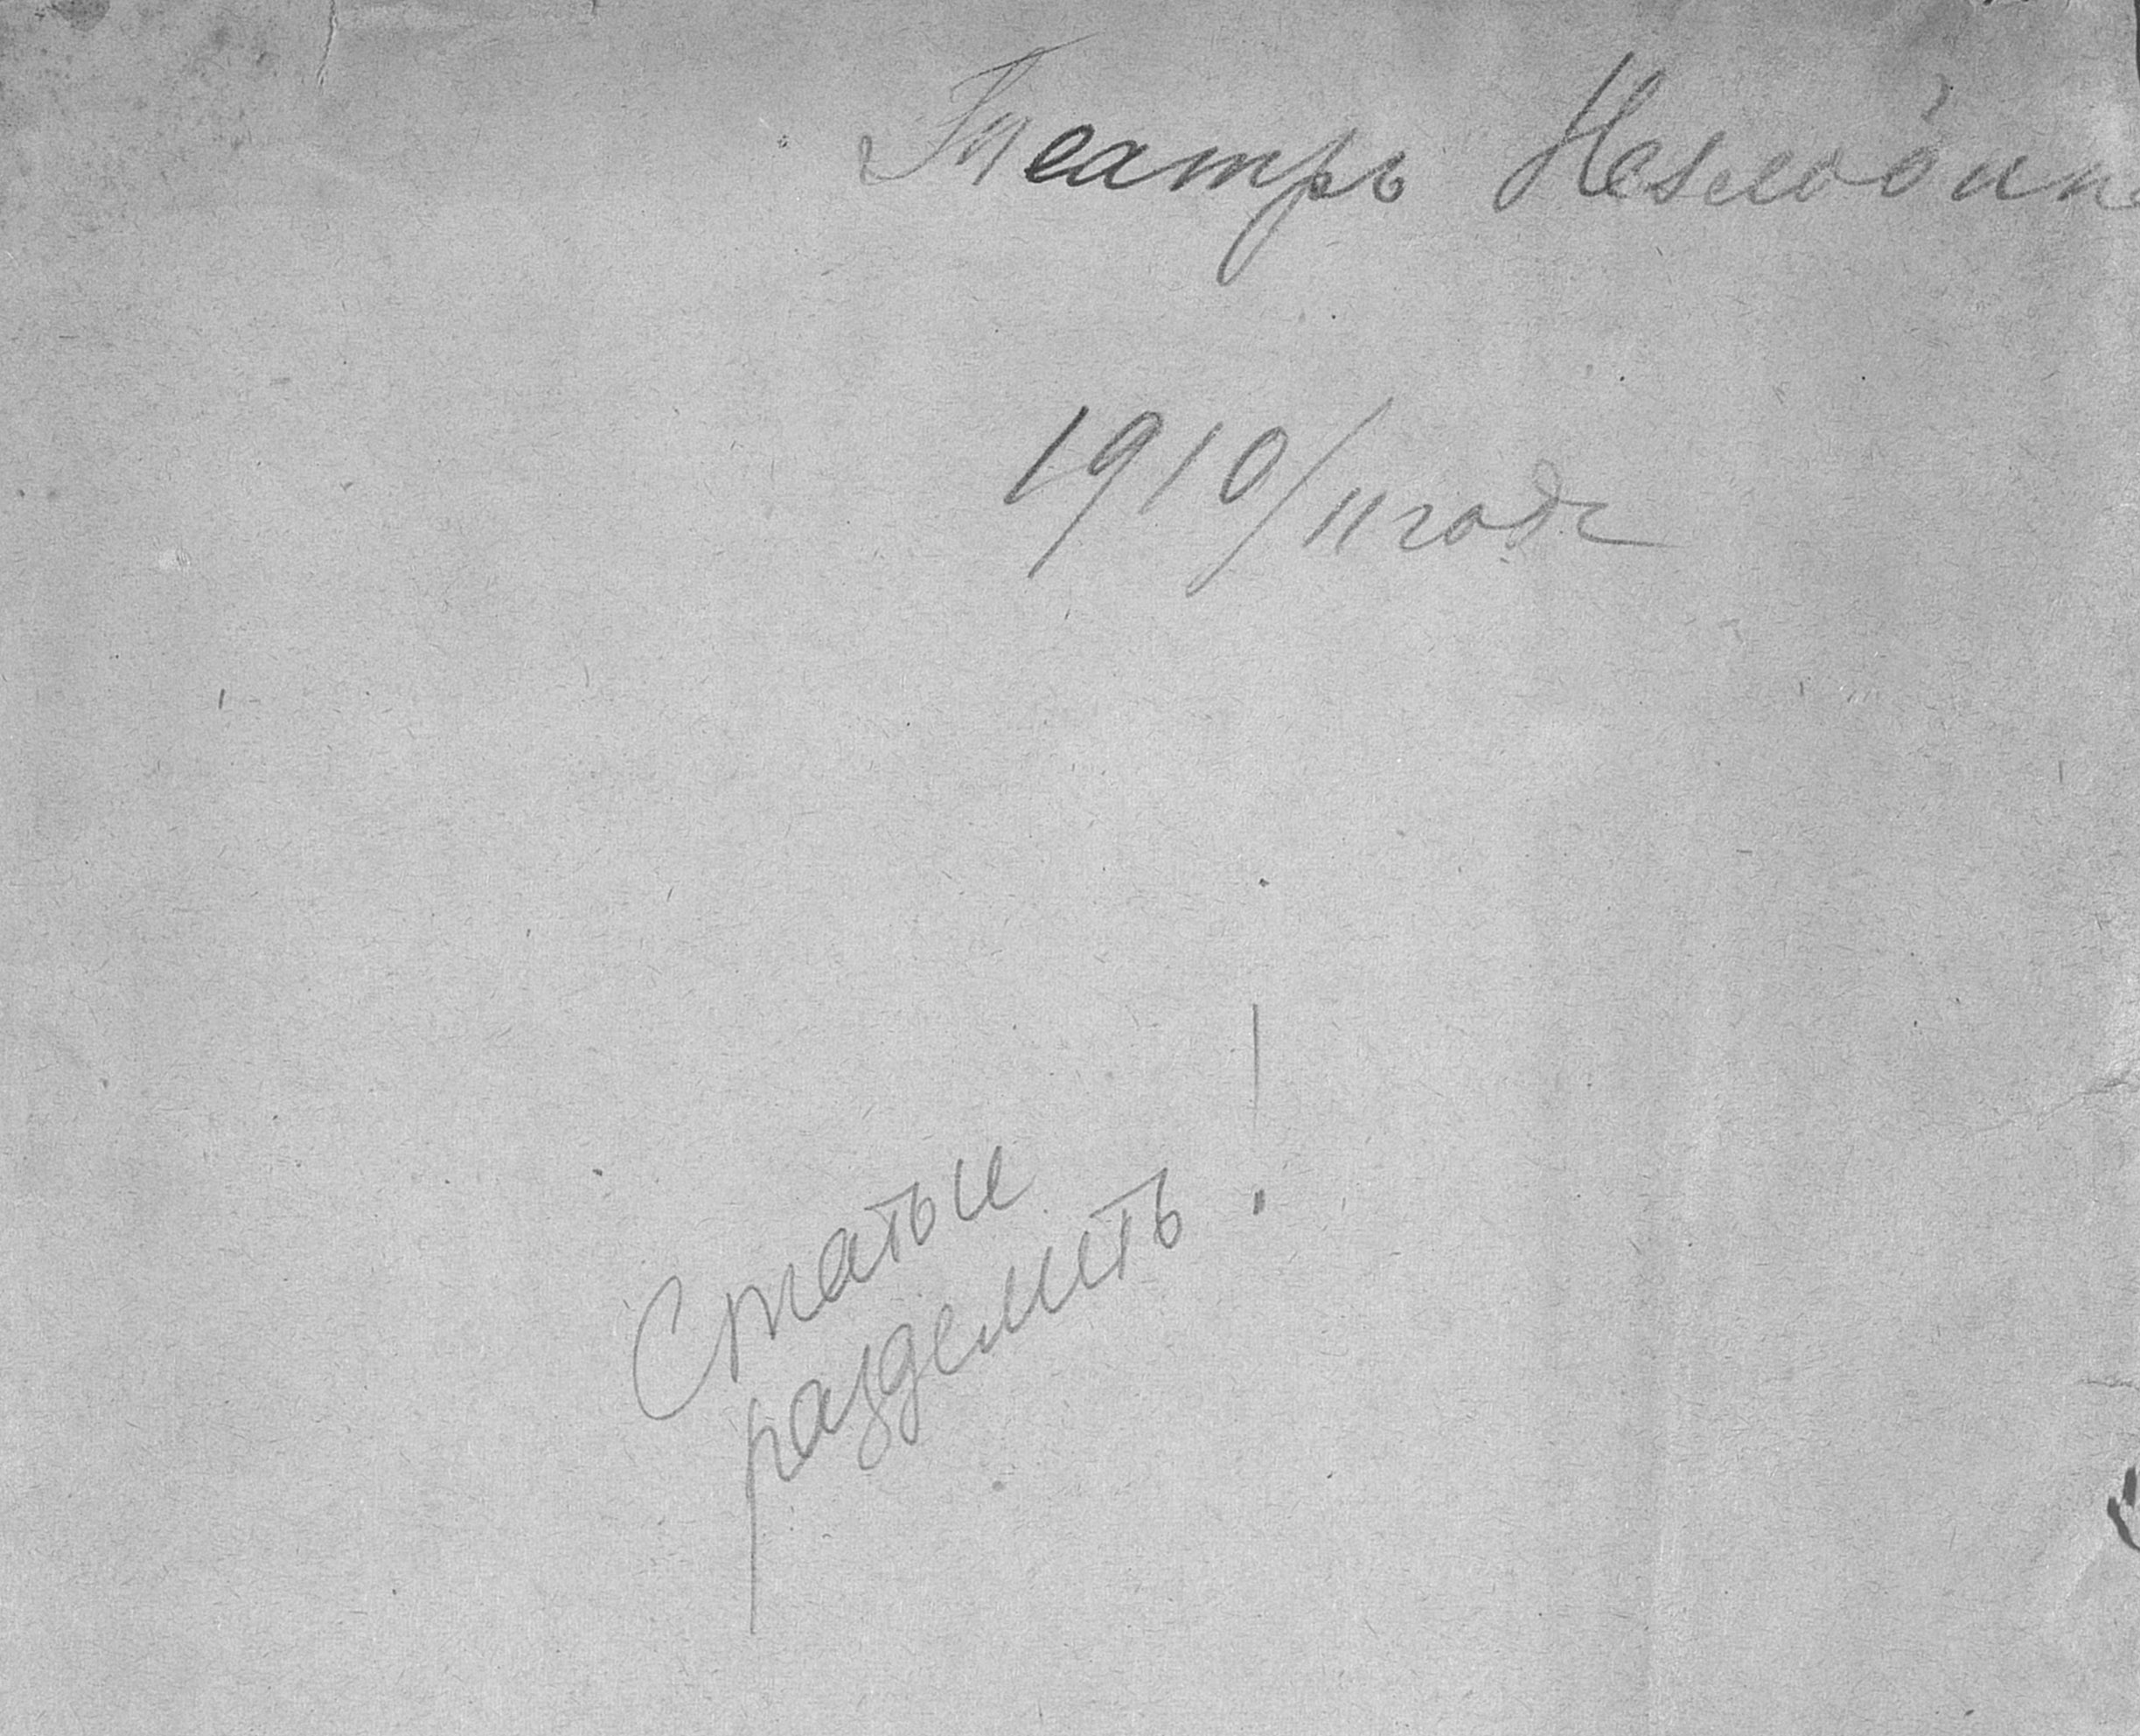 Театръ Незлобина
1910/11 годъ
Статьи
разделить!